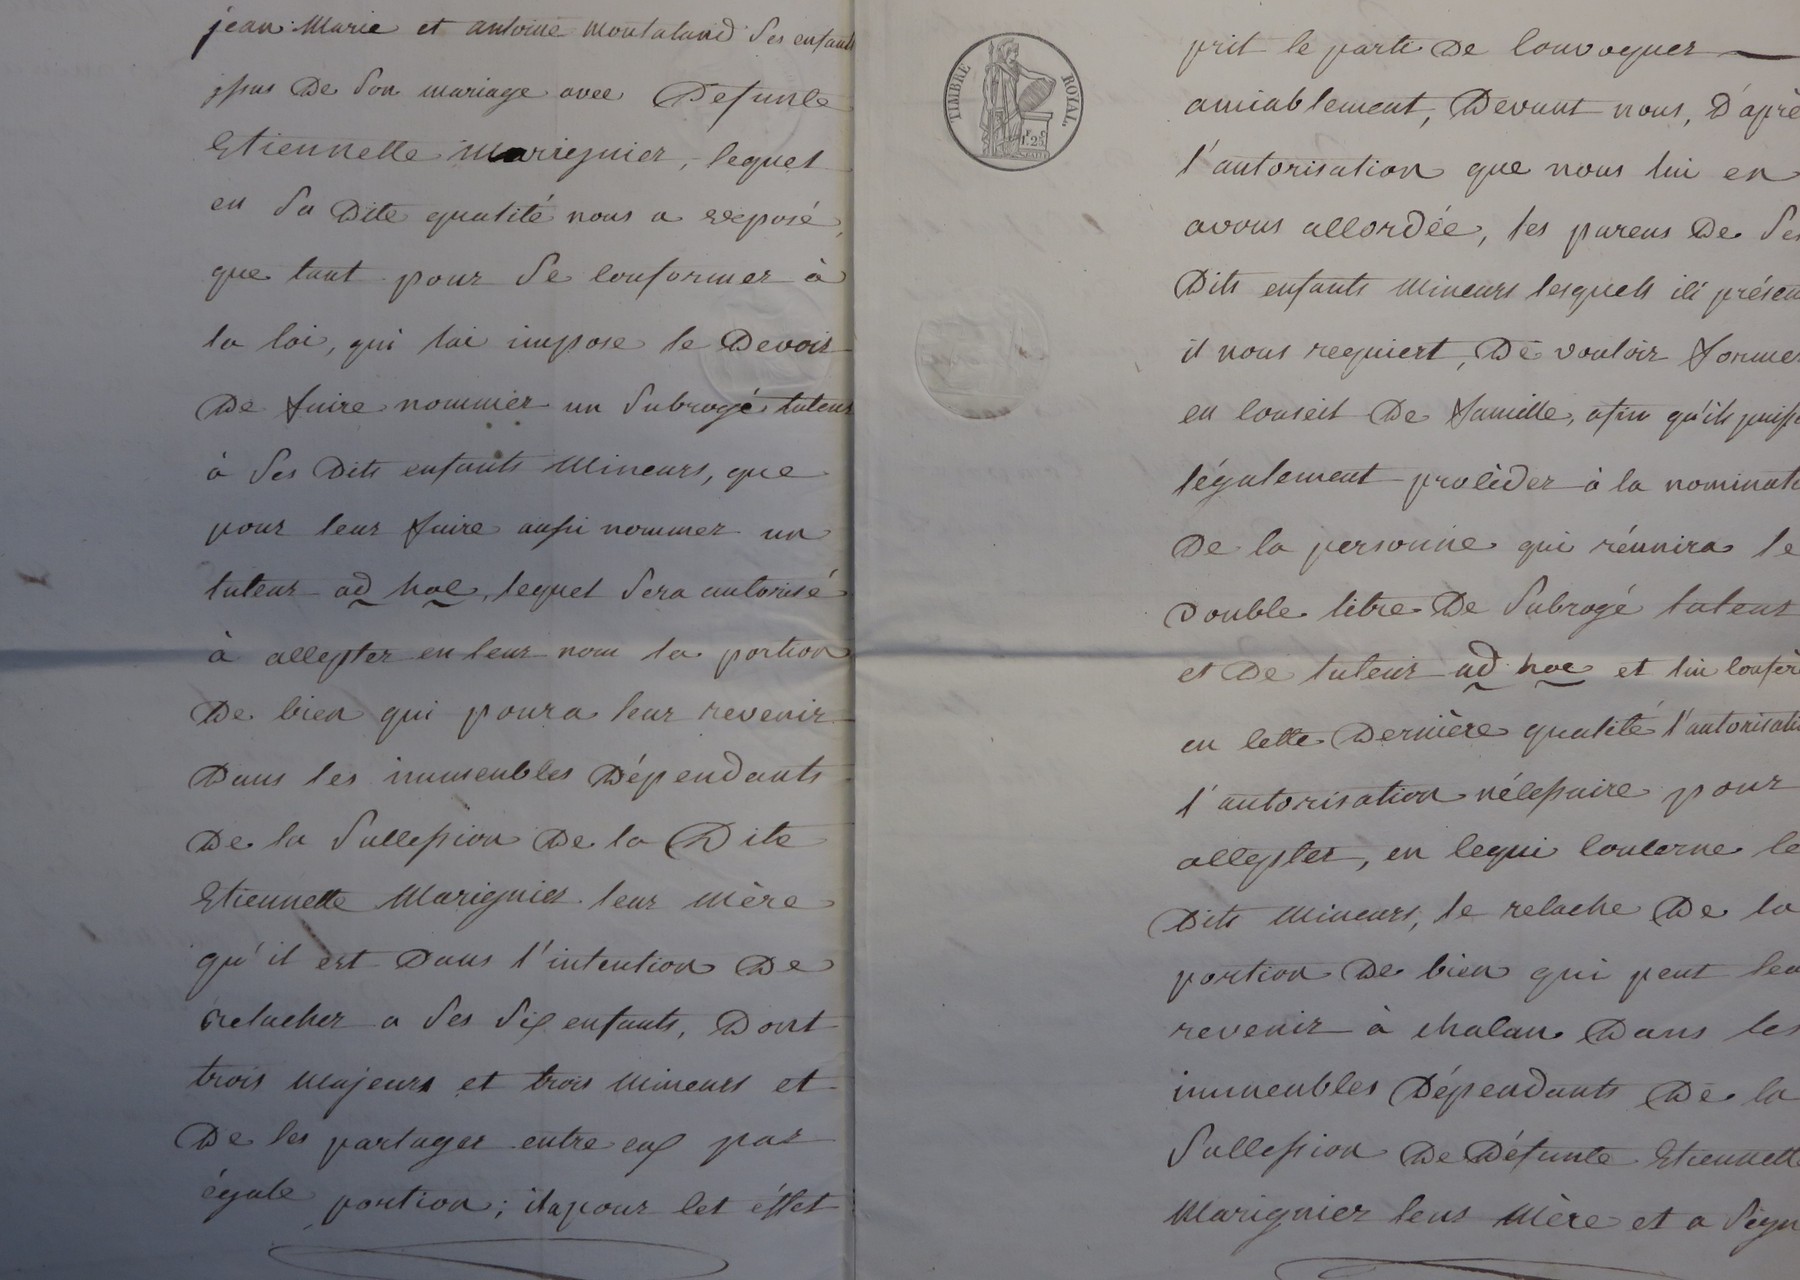 jean Marie et antoine Montaland Ses enfants
issus De Son mariage avec Defunte
Etiennette Marignier, lequel
en Sa Dite qualité nous a exposé,
que tant pour Se conformer à
la loi, qui lui impose le Devoir
De faire nommer un Subrogé tuteur
à Ses Dits enfants Mineurs, que
pour leur faire aussi nommer un
tuteur ad hoc, lequel Sera autorisé
à accepter en leur nom la portion
De bien qui poura leur revenir
Dans les immeubles Dépendants
De la Succession De la Dite
Etiennette Marignier leur Mère
qu'il est Dans l'intention De
relacher a Ses Six enfants, Dont
trois Majeurs et trois Mineurs et
De les partager entre eux par
égale portion; il a pour cet éffet
TIMBRE ROYAL
1F 25C
prit le parti De Convoquer
amiablement, Devant nous, D'après
l'autorisation que nous lui en
avons accordée, les parens De Ses
Dits enfants Mineurs lesquels ici présen
il nous requiert, De vouloir former
en Conseil De famille, afin qu'ils puisse
légalement procèder à la nominati
De la personne qui réunira le
Double titre De Subrogé tuteur
et De tuteur ad hoc et lui Confér
en Cette Dernière qualité l'autorisati
l'autorisation nécessaire pour
accepter, en cequi Concerne le
Dits Mineurs, le relache De la
portion De bien qui peut leu
revenir à chacun Dans les
immeubles Dépendants De la
Succession De Défunte Etiennette
Marignier leur Mère et a Sign